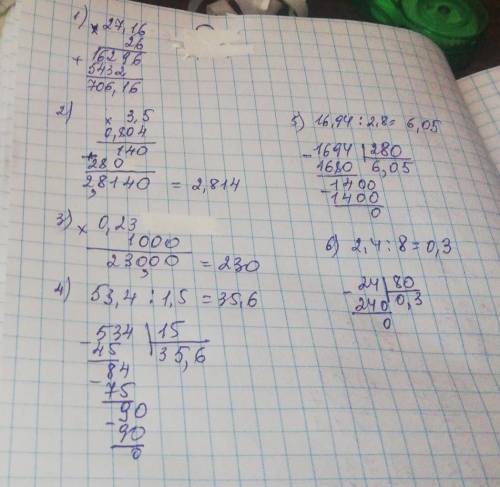 1) × 27,16
26
+ 16296
5432
706,16
2) × 3,5
0,804
+ 140
280
2,8140 = 2,814
3) × 0,23
1000
230,00 = 230
4) 53,4 : 1,5 = 35,6
- 534 | 15
45 | 35,6
- 84
75
- 90
90
0
5) 16,94 : 2,8 = 6,05
- 1694 | 280
1680 | 6,05
- 1400
1400
0
6) 2,4 : 8 = 0,3
- 24 | 80
240 | 0,3
0